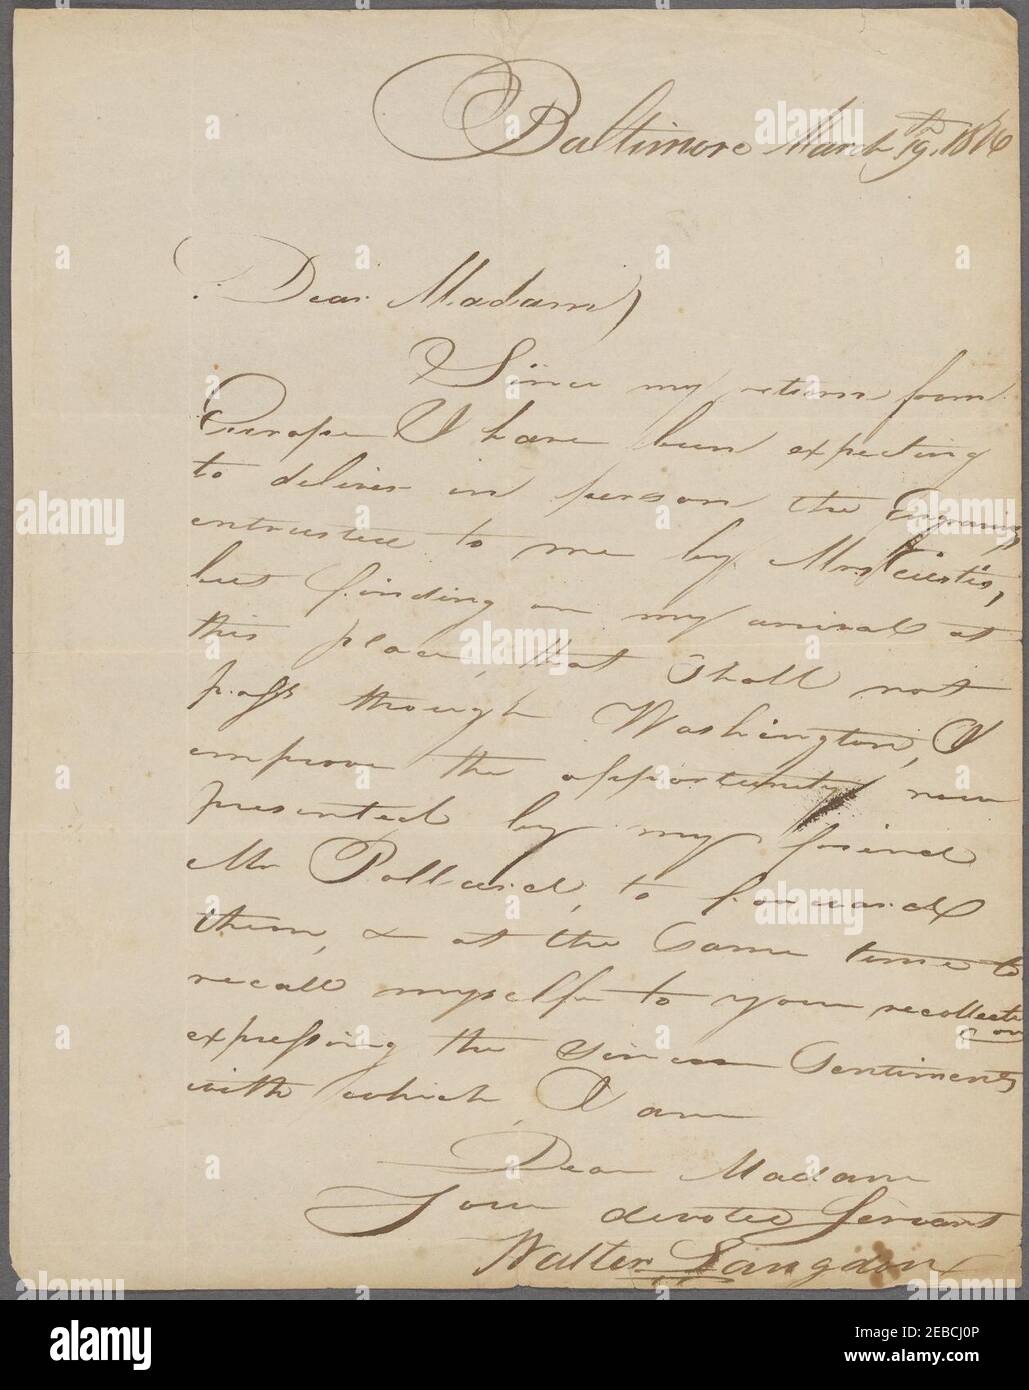 Baltimore March 19.th 1816
Dear Madam,
Since my return from
Europe I have been expecting
to deliver in person the Engravings
entrusted to me by Mrs Custis,
but finding on my arrival at
this place, that I shall not
pass through Washington, I
improve the opportunity now
presented by my friend
Mr Pollard, to forward
them, & at the same time to
recall myself to your recollecti
on
expressing the sincere Sentiments
with which, I am
Dear Madam
Your devoted Servant
Walter Langdon
alamy
a
alamy stock photo
Image ID: 2EBCJ0P
www.alamy.com